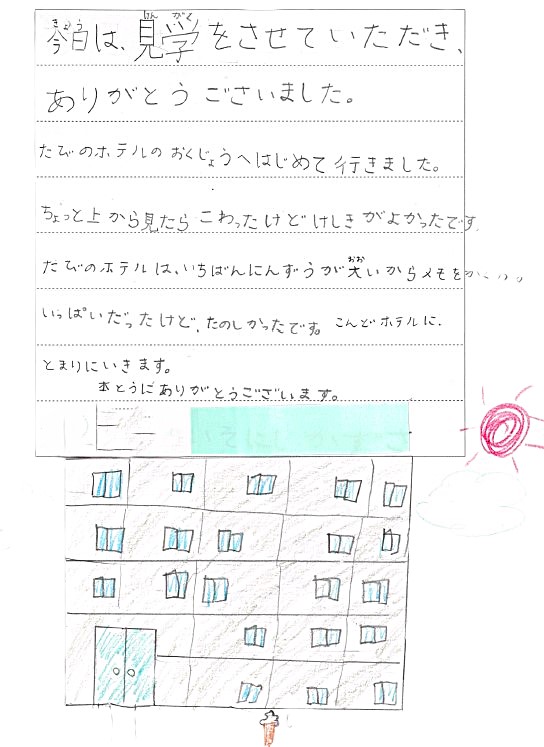 今日は、見学をさせていただき、
ありがとうございました。
たびのホテルのおくじょうへはじめて行きました。
ちょっと上から見たらこわったけどけしきがよかったです
たびのホテルは、いちばんにんずうが大いからメモを
いっぱいだったけど、たのしかったです。こんどホテルに、
とまりにいきます。
ほとうにありがとうございます。